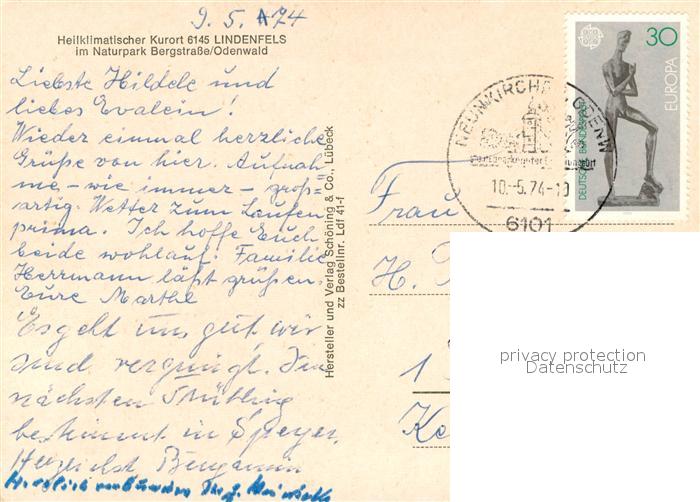 9. 5. 74
Heilklimatischer Kurort 6145 LINDENFELS
im Naturpark Bergstraße/Odenwald
Liebste Hildele und
liebes Evalein!
Wieder einmal herzliche
Grüße von hier. Aufnah=
me - wie immer - groß=
artig. Wetter zum Laufen
prima. Ich hoffe Euch
beide wohlauf. Familie
Herrmann läßt grüßen.
Eure Marthe
Es geht uns gut, wir
sind vergnügt. Im
nächsten Frühling
bestimmt in Speyer.
Herzlichst Benjamin
Herzlich verbunden
Hersteller und Verlag Schöning & Co., Lübeck
zz Bestellnr. Ldf 41-f
30
EUROPA
DEUTSCHE BUNDESPOST
NEUNKIRCHEN ODENW
10.-5.74-10
6101
Frau
H.
1
privacy protection
Datenschutz